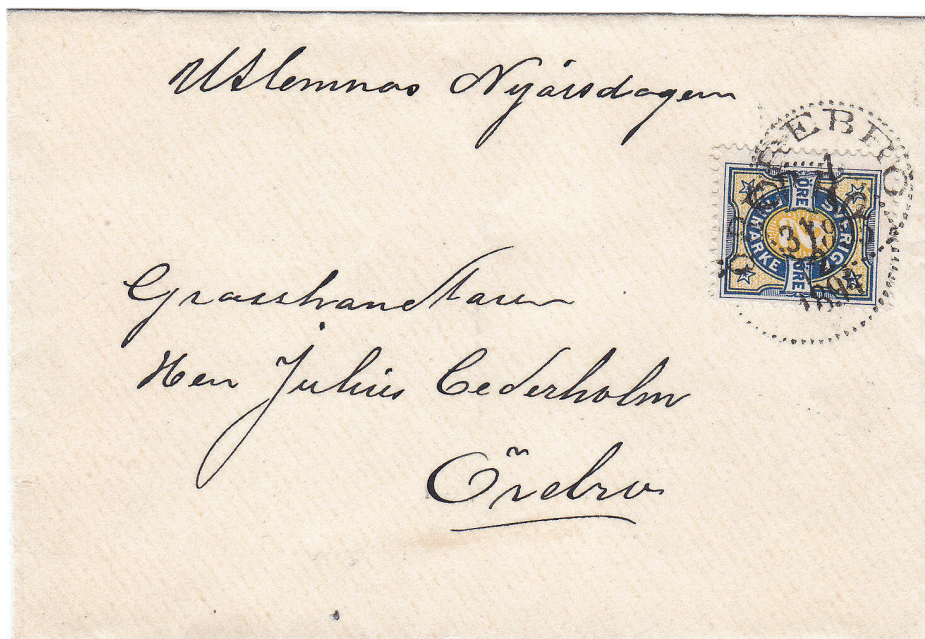 Utlemnas Nyårsdagen
ÖREBRO
ÖRE
SVERIGE
FRIMÄRKE
ÖRE
Grosshandlaren
Herr Julius Cederholm
Örebro